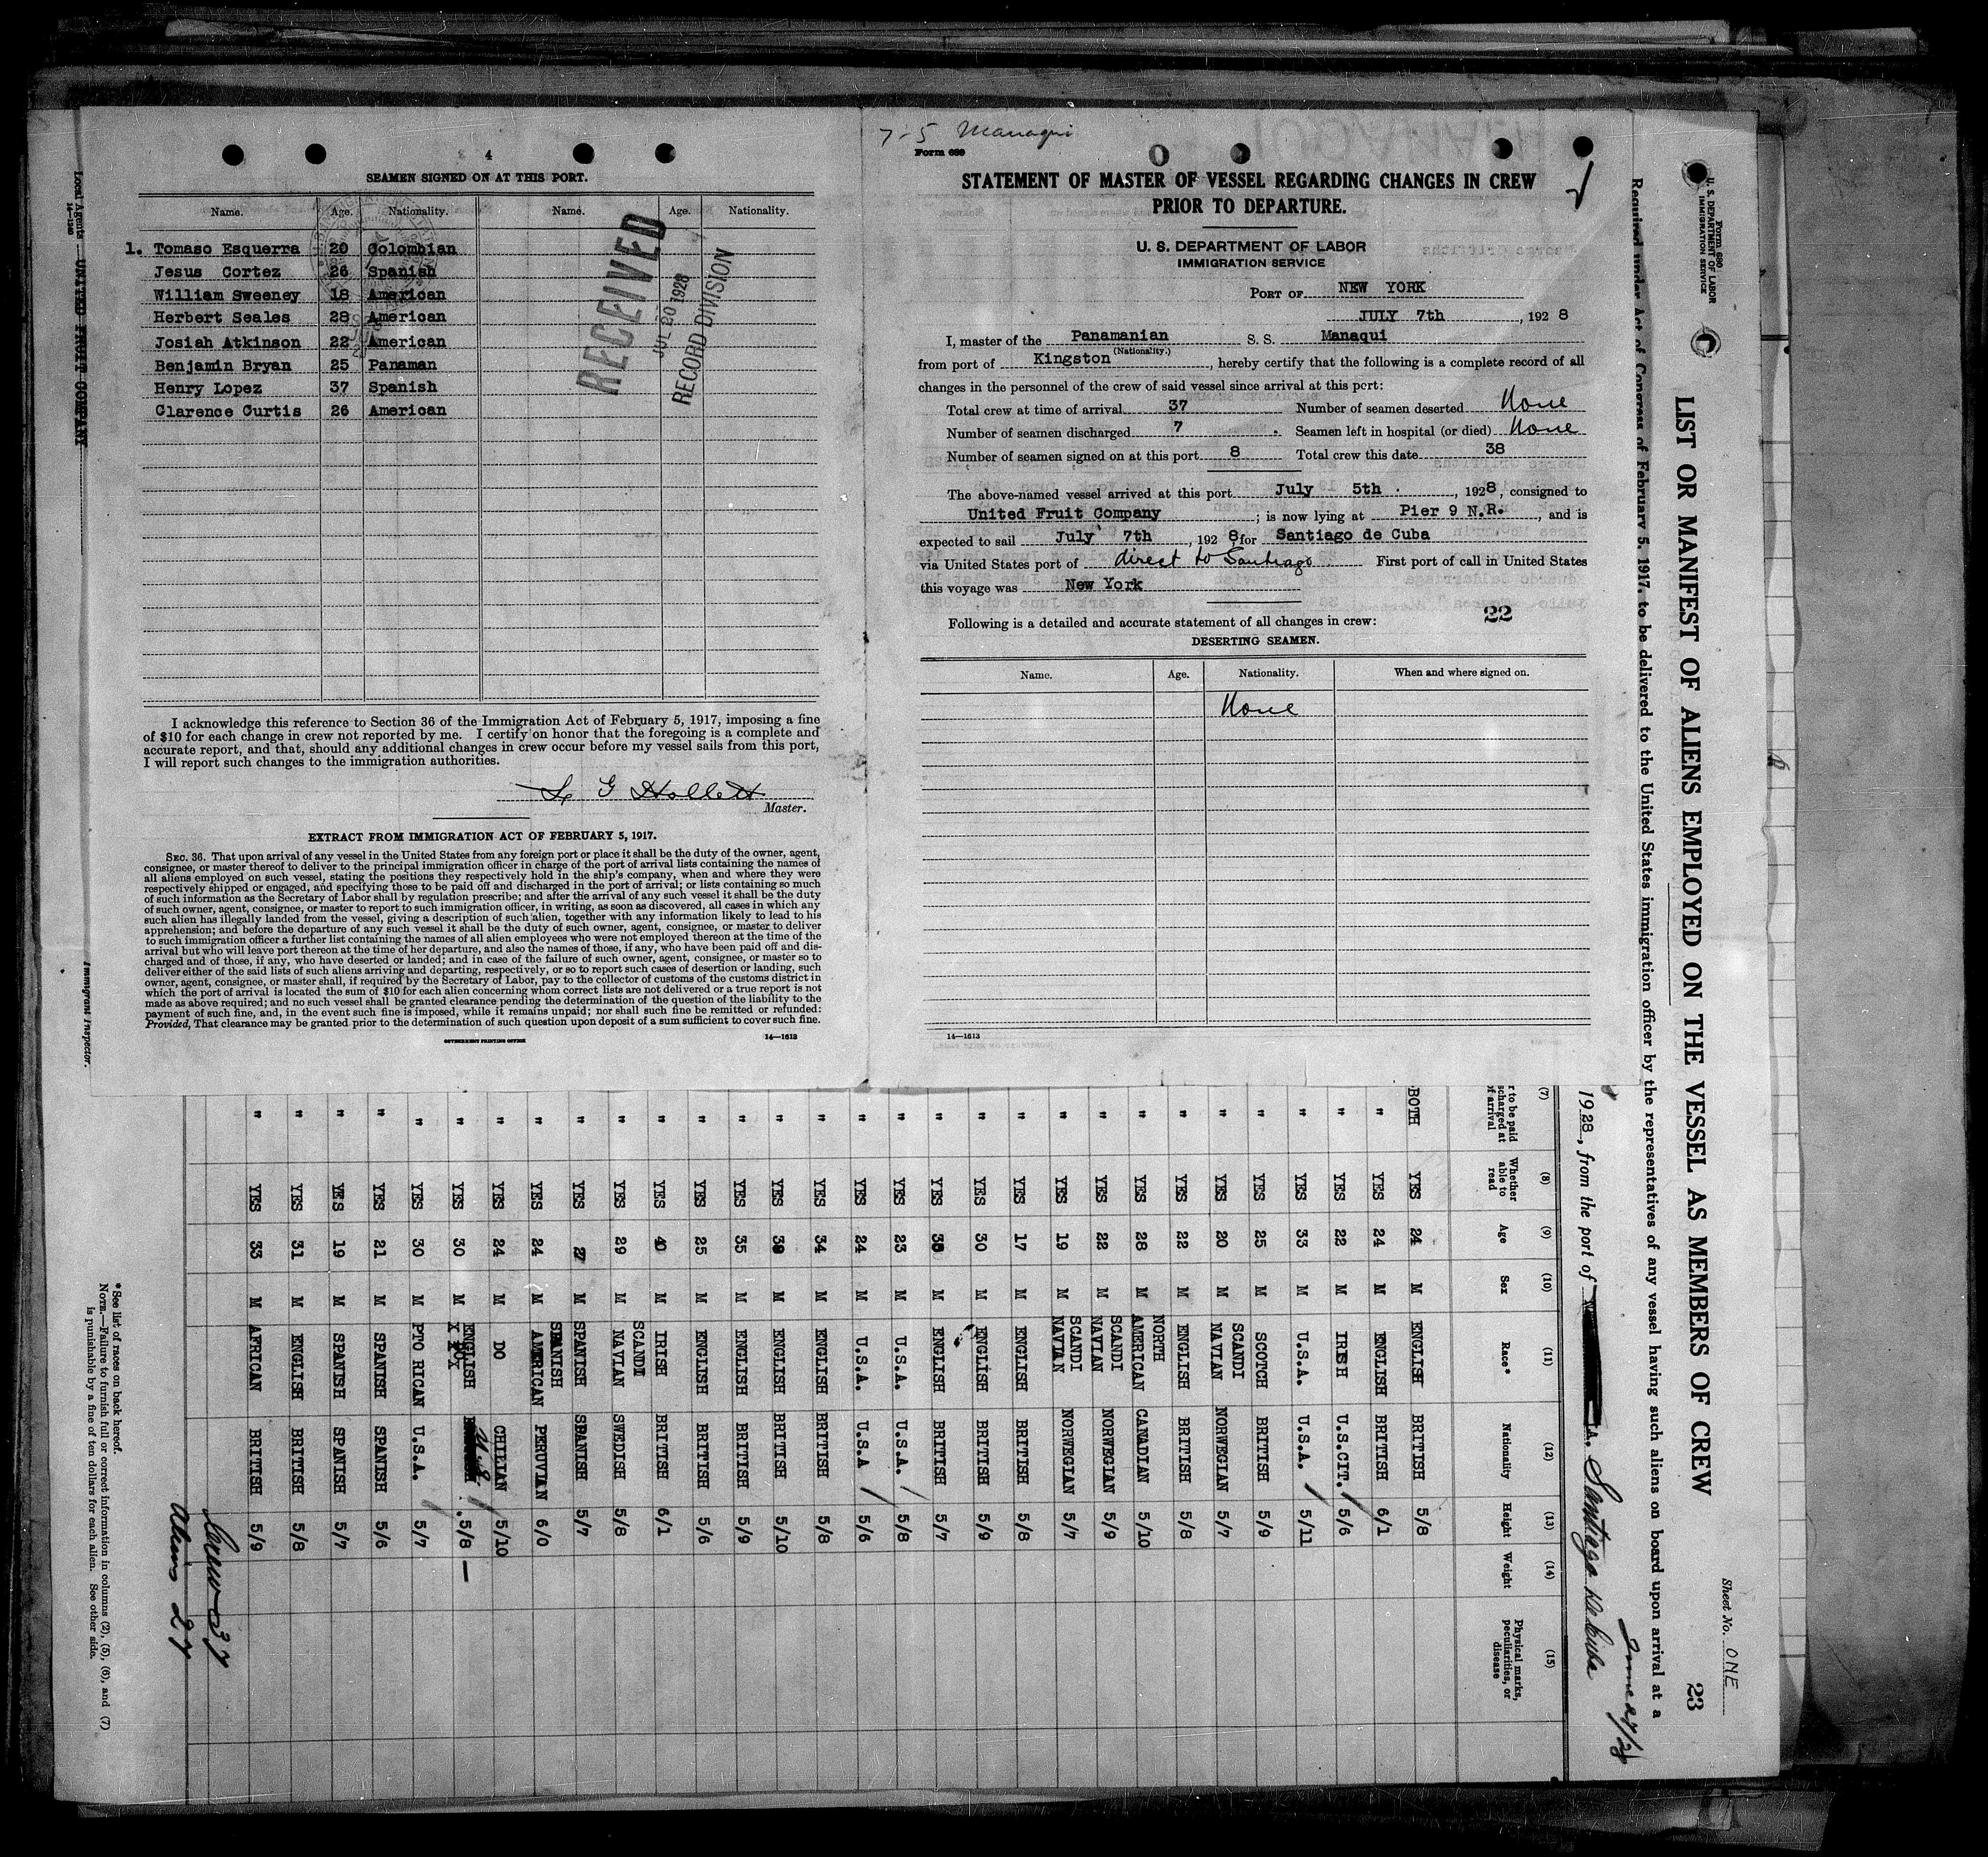 4
SEAMEN SIGNED ON AT THIS PORT.
Name. Age. Nationality. Name. Age. Nationality.
1. Tomaso Esquerra 20 Colombian
Jesus Cortez 26 Spanish
William Sweeney 18 American
Herbert Seales 28 American
Josiah Atkinson 22 American
Benjamin Bryan 25 Panaman
Henry Lopez 37 Spanish
Clarence Curtis 26 American
RECEIVED
JUL 20 1928
RECORD DIVISION
I acknowledge this reference to Section 36 of the Immigration Act of February 5, 1917, imposing a fine
of $10 for each change in crew not reported by me. I certify on honor that the foregoing is a complete and
accurate report, and that, should any additional changes in crew occur before my vessel sails from this port,
I will report such changes to the immigration authorities.
G Hollett
Master.
EXTRACT FROM IMMIGRATION ACT OF FEBRUARY 5, 1917.
SEC. 36. That upon arrival of any vessel in the United States from any foreign port or place it shall be the duty of the owner, agent,
consignee, or master thereof to deliver to the principal immigration officer in charge of the port of arrival lists containing the names of
all aliens employed on such vessel, stating the positions they respectively hold in the ship's company, when and where they were
respectively shipped or engaged, and specifying those to be paid off and discharged in the port of arrival; or lists containing so much
of such information as the Secretary of Labor shall by regulation prescribe; and after the arrival of any such vessel it shall be the duty
of such owner, agent, consignee, or master to report to such immigration officer, in writing, as soon as discovered, all cases in which any
such alien has illegally landed from the vessel, giving a description of such alien, together with any information likely to lead to his
apprehension; and before the departure of any such vessel it shall be the duty of such owner, agent, consignee, or master to deliver
to such immigration officer a further list containing the names of all alien employees who were not employed thereon at the time of the
arrival but who will leave port thereon at the time of her departure, and also the names of those, if any, who have been paid off and dis-
charged and of those, if any, who have deserted or landed; and in case of the failure of such owner, agent, consignee, or master so to
deliver either of the said lists of such aliens arriving and departing, respectively, or so to report such cases of desertion or landing, such
owner, agent, consignee, or master shall, if required by the Secretary of Labor, pay to the collector of customs of the customs district in
which the port of arrival is located the sum of $10 for each alien concerning whom correct lists are not delivered or a true report is not
made as above required; and no such vessel shall be granted clearance pending the determination of the question of the liability to the
payment of such fine, and, in the event such fine is imposed, while it remains unpaid; nor shall such fine be remitted or refunded:
Provided, That clearance may be granted prior to the determination of such question upon deposit of a sum sufficient to cover such fine.
GOVERNMENT PRINTING OFFICE 14—1613
7-5 Managui
Form 689
STATEMENT OF MASTER OF VESSEL REGARDING CHANGES IN CREW
PRIOR TO DEPARTURE.
U. S. DEPARTMENT OF LABOR
IMMIGRATION SERVICE
PORT OF NEW YORK
JULY 7th, 1928
I, master of the Panamanian S. S. Managui
(Nationality.)
from port of Kingston, hereby certify that the following is a complete record of all
changes in the personnel of the crew of said vessel since arrival at this port:
Total crew at time of arrival 37 Number of seamen deserted None
Number of seamen discharged 7 Seamen left in hospital (or died) None
Number of seamen signed on at this port 8 Total crew this date 38
The above-named vessel arrived at this port July 5th, 1928, consigned to
United Fruit Company; is now lying at Pier 9 N.R., and is
expected to sail July 7th, 1928, for Santiago de Cuba
via United States port of direct to Santiago First port of call in United States
this voyage was New York
22
Following is a detailed and accurate statement of all changes in crew:
DESERTING SEAMEN.
Name. Age. Nationality. When and where signed on.
None
14—1613
Local Agents UNITED FRUIT COMPANY
14—1240
Immigrant Inspector.
Form 680
U. S. DEPARTMENT OF LABOR
IMMIGRATION SERVICE
Sheet No. ONE
23
LIST OR MANIFEST OF ALIENS EMPLOYED ON THE VESSEL AS MEMBERS OF CREW
Required under Act of Congress of February 5, 1917, to be delivered to the United States immigration officer by the representatives of any vessel having such aliens on board upon arrival at a
1928, from the port of Santiago de Cuba
June 27/28
(7) (8) (9) (10) (11) (12) (13) (14) (15)
r to be paid
scharged at
of arrival
Whether able to read
Age
Sex
Race*
Nationality
Height
Weight
Physical marks, peculiarities, or disease
BOTH YES 24 M ENGLISH BRITISH 5/8
" YES 24 M ENGLISH BRITISH 6/1
" YES 22 M IRISH U.S.CIT. 5/6
" YES 33 M U.S.A. U.S.A. 5/11
" YES 25 M SCOTCH BRITISH 5/9
" YES 20 M SCANDI NAVIAN NORWEGIAN 5/7
" YES 22 M ENGLISH BRITISH 5/8
" YES 28 M NORTH AMERICAN CANADIAN 5/10
" YES 22 M SCANDI NAVIAN NORWEGIAN 5/9
" YES 19 M SCANDI NAVIAN NORWEGIAN 5/7
" YES 17 M ENGLISH BRITISH 5/8
" YES 30 M ENGLISH BRITISH 5/9
" YES M ENGLISH BRITISH 5/7
" YES 23 M U.S.A. U.S.A. 5/8
" YES 24 M U.S.A. U.S.A 5/6
" YES 34 M ENGLISH BRITISH 5/8
" YES M ENGLISH BRITISH 5/10
" YES 35 M ENGLISH BRITISH 5/9
" YES 25 M ENGLISH BRITISH 5/6
" YES 40 M IRISH BRITISH 6/1
" YES 29 M SCANDI NAVIAN SWEDISH 5/8
" YES 27 M SPANISH SPANISH 5/7
" YES 24 M SPANISH AMERICAN PERUVIAN 6/0
" YES 24 M DO CHILIAN 5/10
" YES 30 M ENGLISH U.S. 5/8
" YES 30 M PTO RICAN U.S.A. 5/7
" YES 21 M SPANISH SPANISH 5/6
" YES 19 M SPANISH SPANISH 5/7
" YES 31 M ENGLISH BRITISH 5/8
" YES 33 M AFRICAN BRITISH 5/9
Crew 37
Aliens 27
*See list of races on back hereof.
NOTE.—Failure to furnish full or correct information in columns (2), (5), (6), and (7)
is punishable by a fine of ten dollars for each alien. See other side.